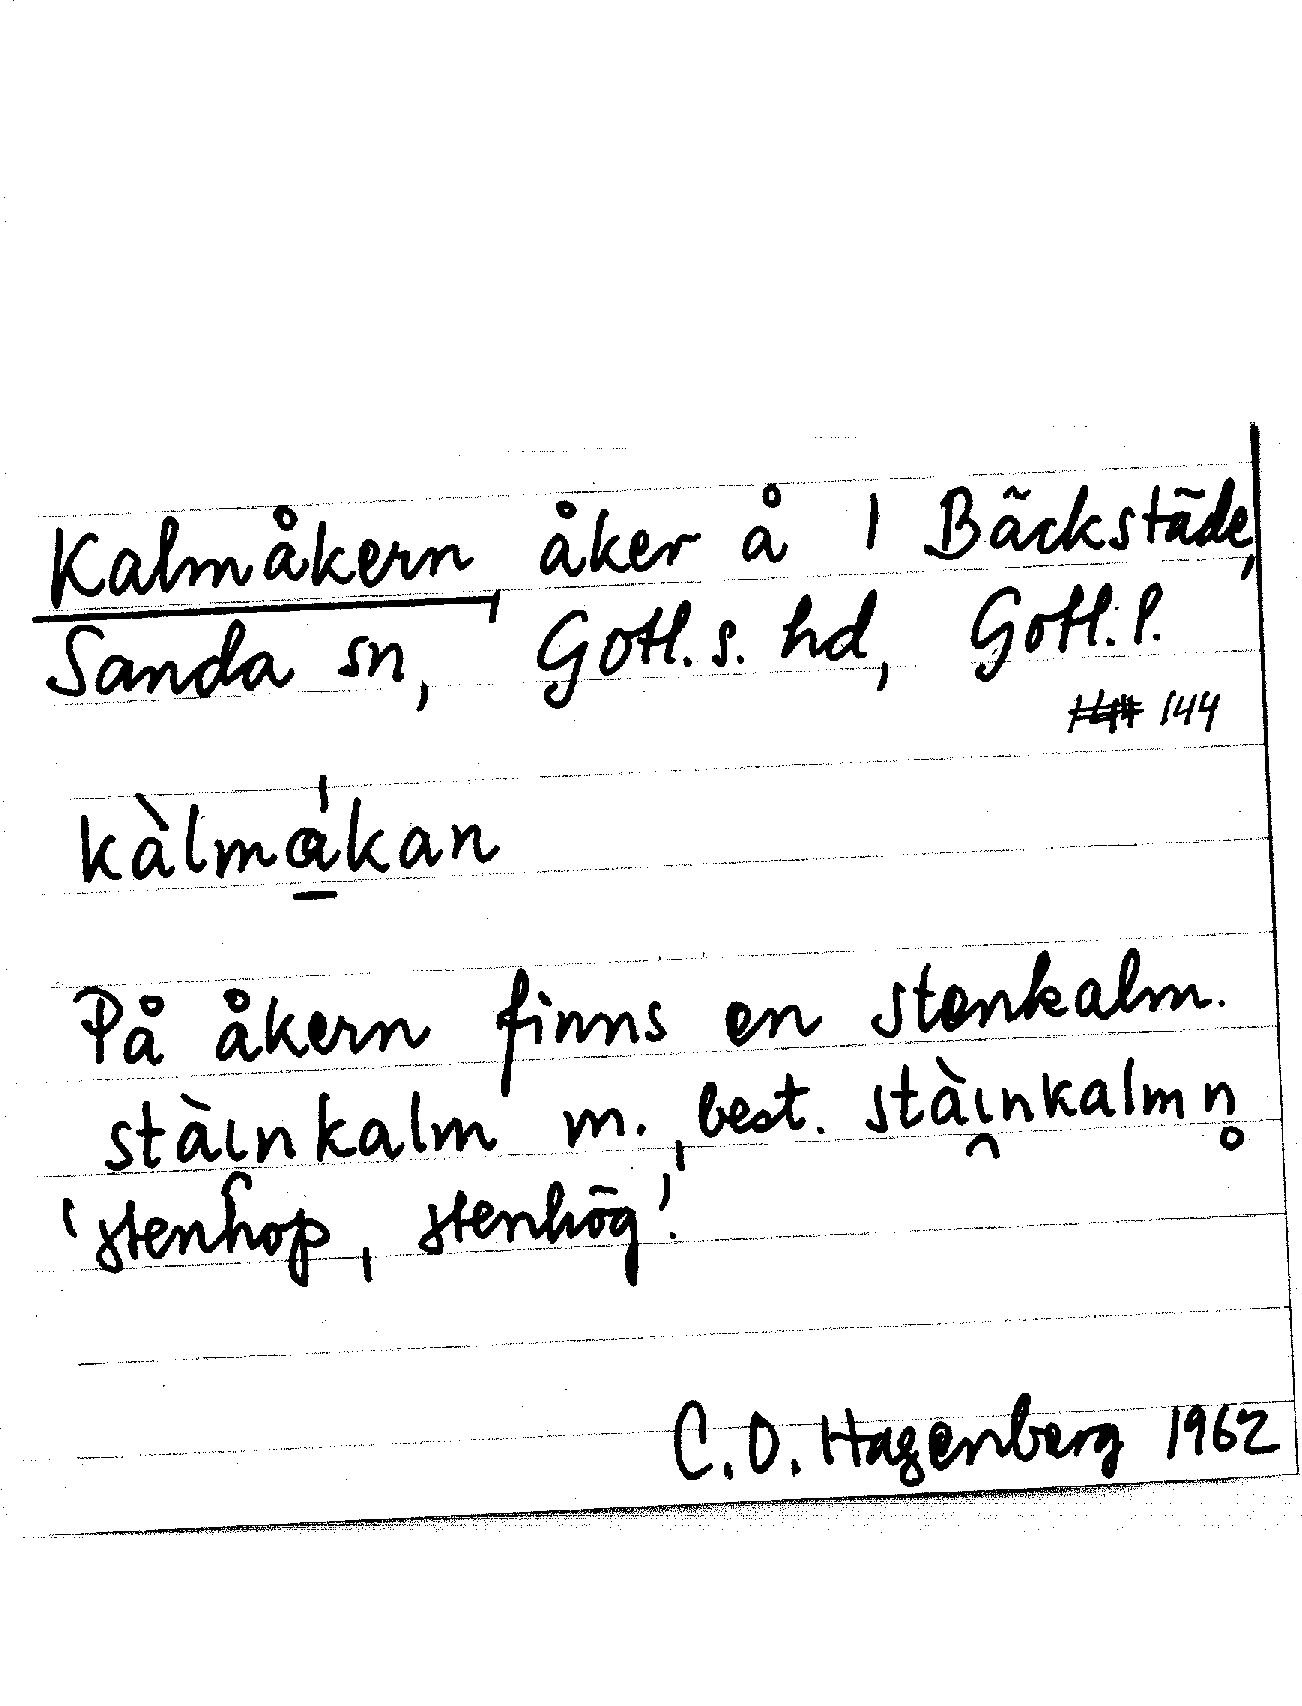 Kalmåkern, åker å 1 Bäckstäde,
Sanda sn, Gotl. s. hd, Gotl. l.
144
kàlmákan
På åkern finns en stenkalm.
stàınkalm m., best. stàı̯nkalmn̥
'stenhop, stenhög'.
C.O. Hagenberg 1962